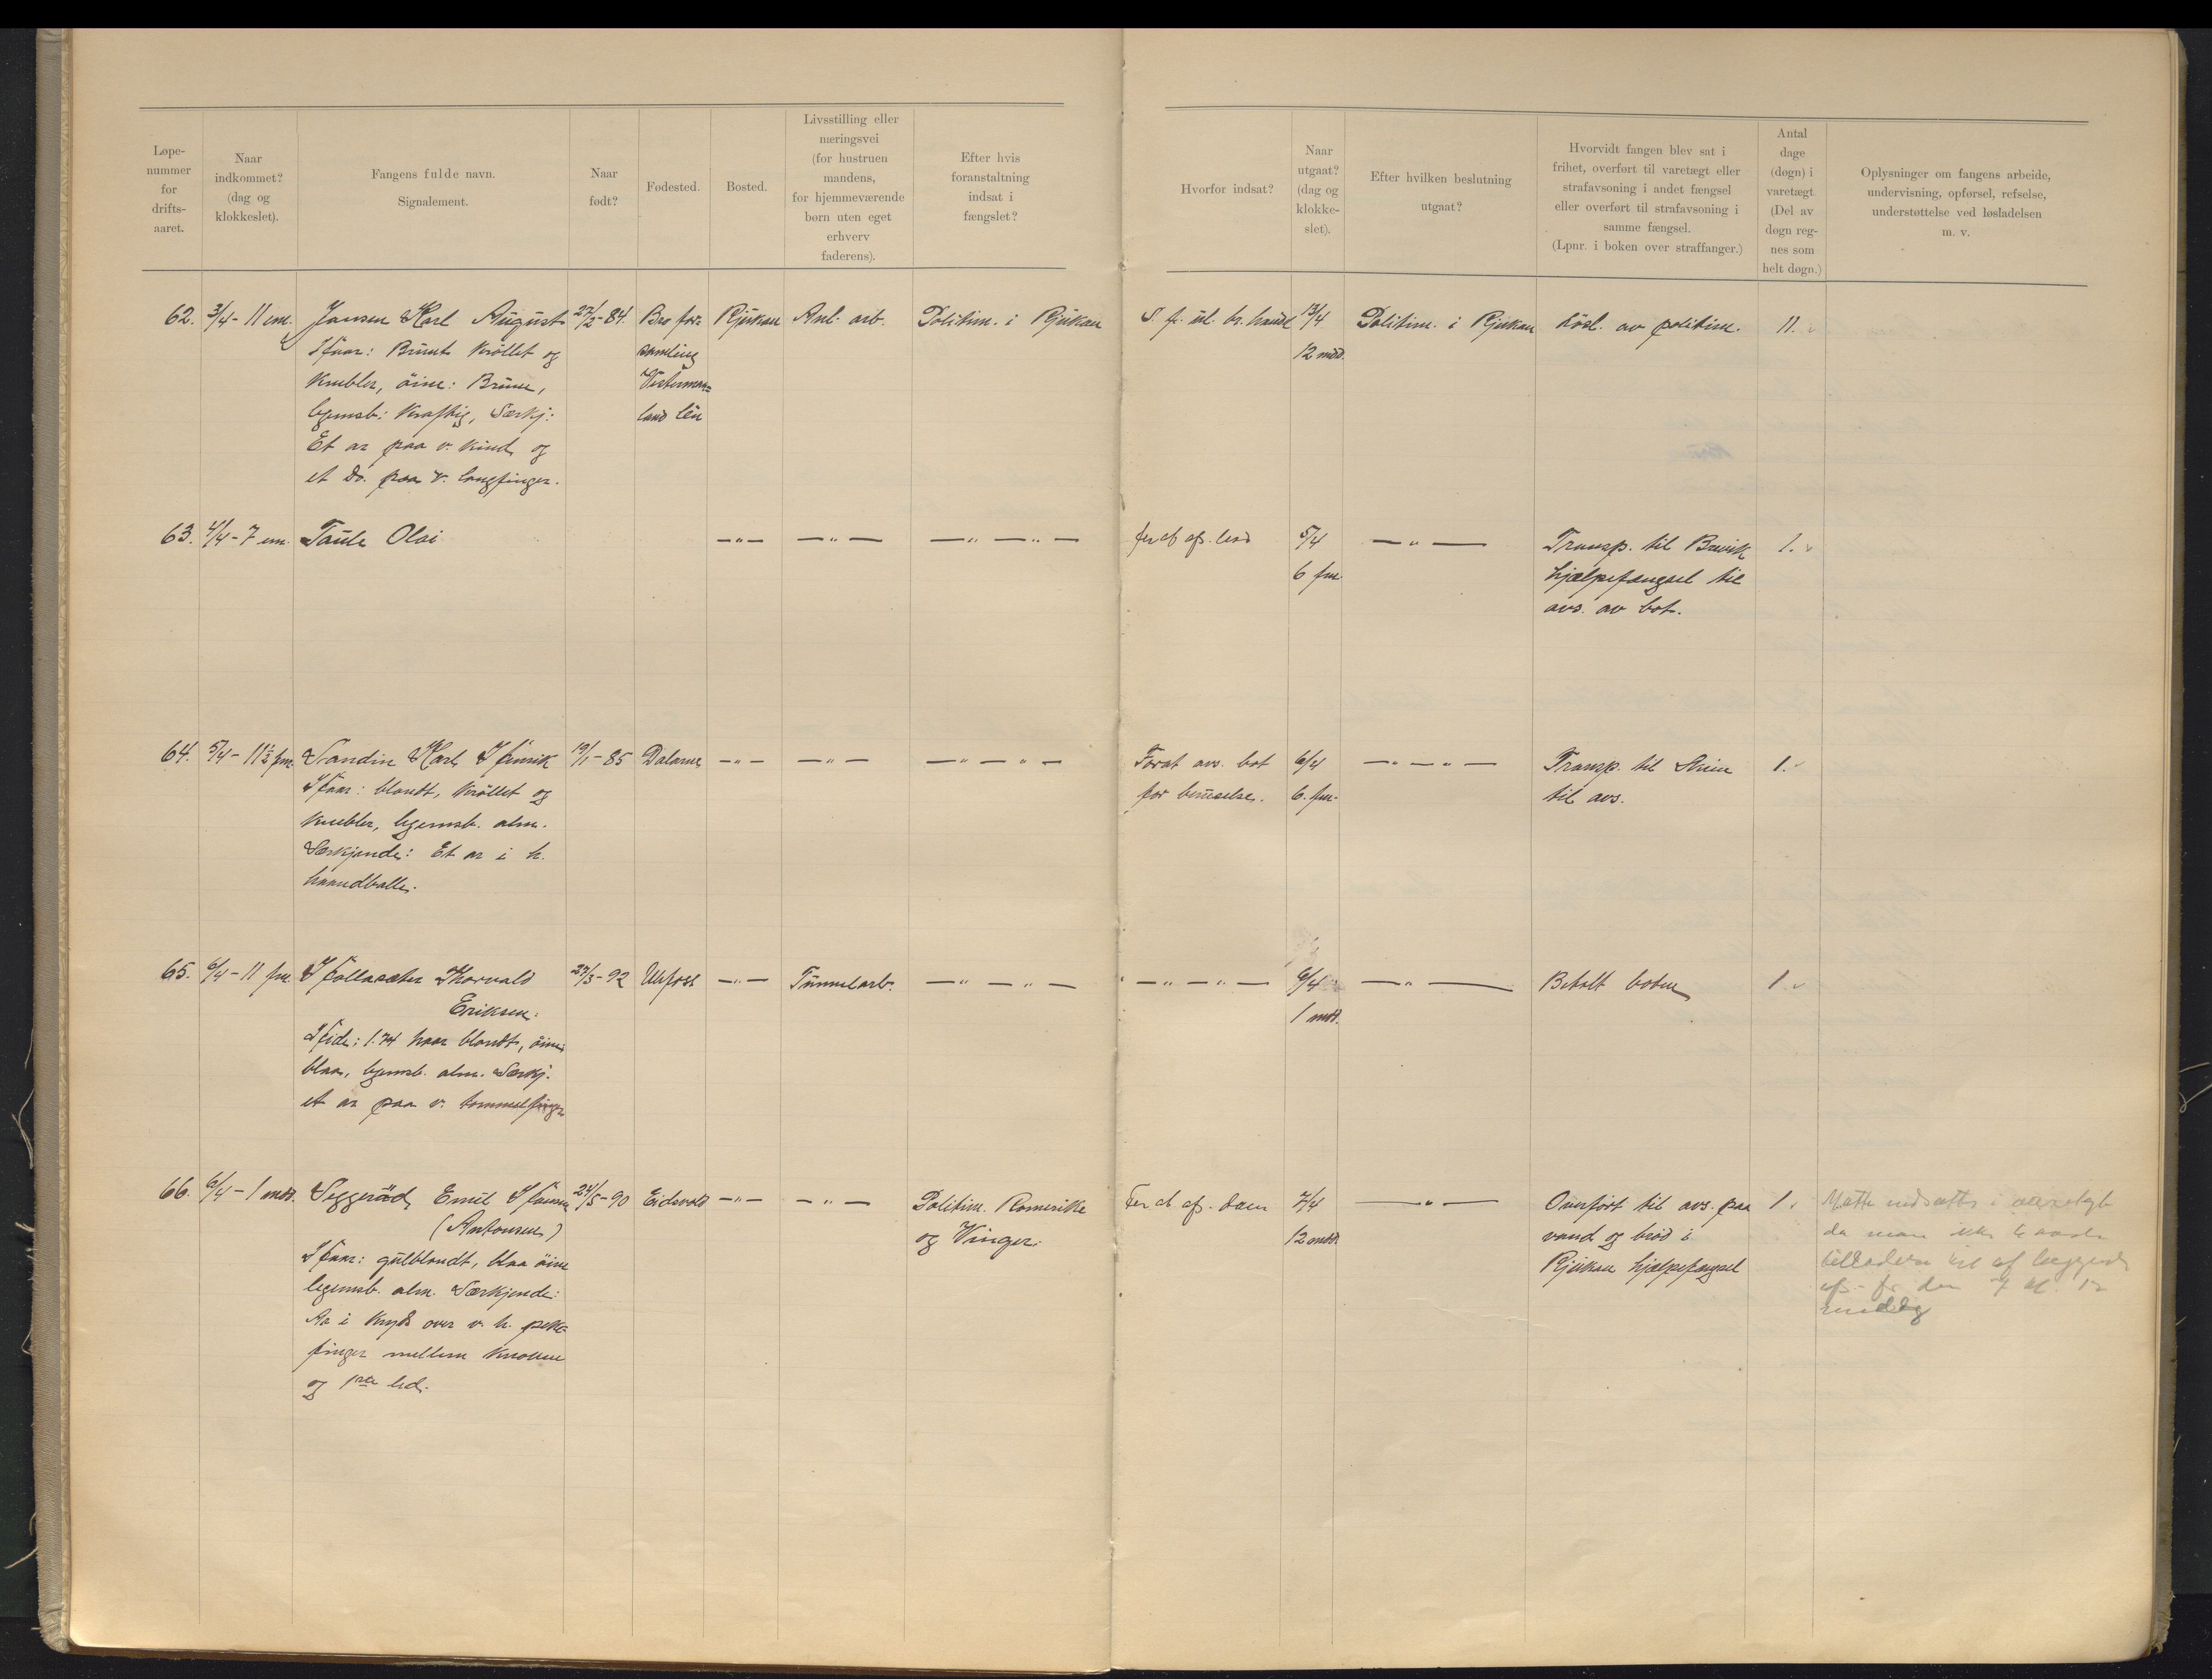 Løpe-
nummer
for
drifts-
aaret.
Naar
indkommet?
(dag og
klokkeslet).
Fangens fulde navn.
Signalement.
Naar
født?
Fødested.
Bosted.
Livsstilling eller
næringsvei
(for hustruen
mandens,
for hjemmeværende
børn uten eget
erhverv
faderens).
Efter hvis
foranstaltning
indsat i
fængslet?
Hvorfor indsat?
Naar
utgaat?
(dag og
klokke-
slet).
Efter hvilken beslutning
utgaat?
Hvorvidt fangen blev sat i
frihet, overført til varetægt eller
strafavsoning i andet fængsel
eller overført til strafavsoning i
samme fængsel.
(Lpnr. i boken over straffanger.)
Antal
dage
(døgn) i
varetægt.
(Del av
døgn reg-
nes som
helt døgn.)
Oplysninger om fangens arbeide,
undervisning, opførsel, refselse,
understøttelse ved løsladelsen
m. v.
62. 3/4 - 11 em. Jansen Karl August 27/2-84. Bro for= Rjukan Anl. arb. Politim. i Rjukan S. f. ul. br. handl 13/4 Politim. i Rjukan Løsl. av politim. 11.
Haar: Brunt krøllet og samling 12 mdd.
knebler, øine: Brune, Vesterman=
legemsb: Kraftig, Særkj: land lén
Et ar paa v. kind og
et do. paa v. langfinger.
63. 4/4 - 7 em. Taule Olai —〃— —〃— —〃—〃— 5/4 —〃— Transp. til Brevik 1.
6 fm. hjælpefængsel til
avs. av bot.
64. 5/4 - 11½ fm. Sandin Karl Henrik 19/1-85 Dalarne —〃— —〃— —〃—〃— Forat avs. bot 6/4 —〃—〃— Transp. til Skien 1.
Haar: blondt, krøllet og for beruselse. 6. fm. til avs.
knebler, legemsb. alm.
Særkjende: Et ar i h.
haandballe.
65. 6/4 - 11 fm. Hollasæter Thorvald 27/3-92 —〃— Tunnelarb. —〃—〃— —〃—〃— 6/4 —〃— Betalt boten 1.
Eriksen. 1 mdd.
Høide: 1.74 haar blondt, øine
blaa, legemsb. alm. Særkj.
et ar paa v. tommelfinger
66. 6/4 - 1 mdd. Seggerød, Emil 24/5-90 Eidsvold —〃— —〃— Politim. Romerike 7/4 —〃— Overført til avs. paa 1.
(Antonsen) og Vinger. 12 mdd. vand og brød i
Haar: gulblondt, blaa øine Rjukan hjælpefængsel
legemsb. alm. Særkjende:
Ar i kryds over v. h. peke
finger mellem knoken
og 1ste led.
Maatte indsættes i varetægt
da man ikke
den 7 kl. 12
middag